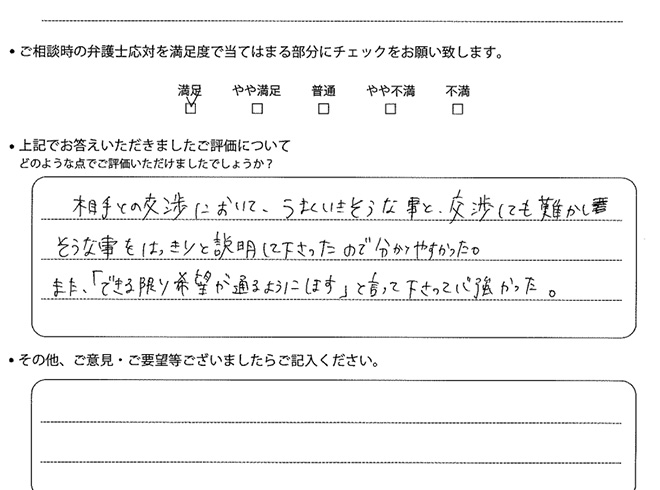 • ご相談時の弁護士応対を満足度で当てはまる部分にチェックをお願い致します。
満足 やや満足 普通 やや不満 不満
☑ □ □ □ □
• 上記でお答えいただきましたご評価について
どのような点でご評価いただけましたでしょうか？
相手との交渉において、うまくいきそうな事と、交渉しても難かし
そうな事をはっきりと説明して下さったので分かりやすかった。
また、「できる限り希望が通るようにします」と言って下さって心強かった。
• その他、ご意見・ご要望等ございましたらご記入ください。